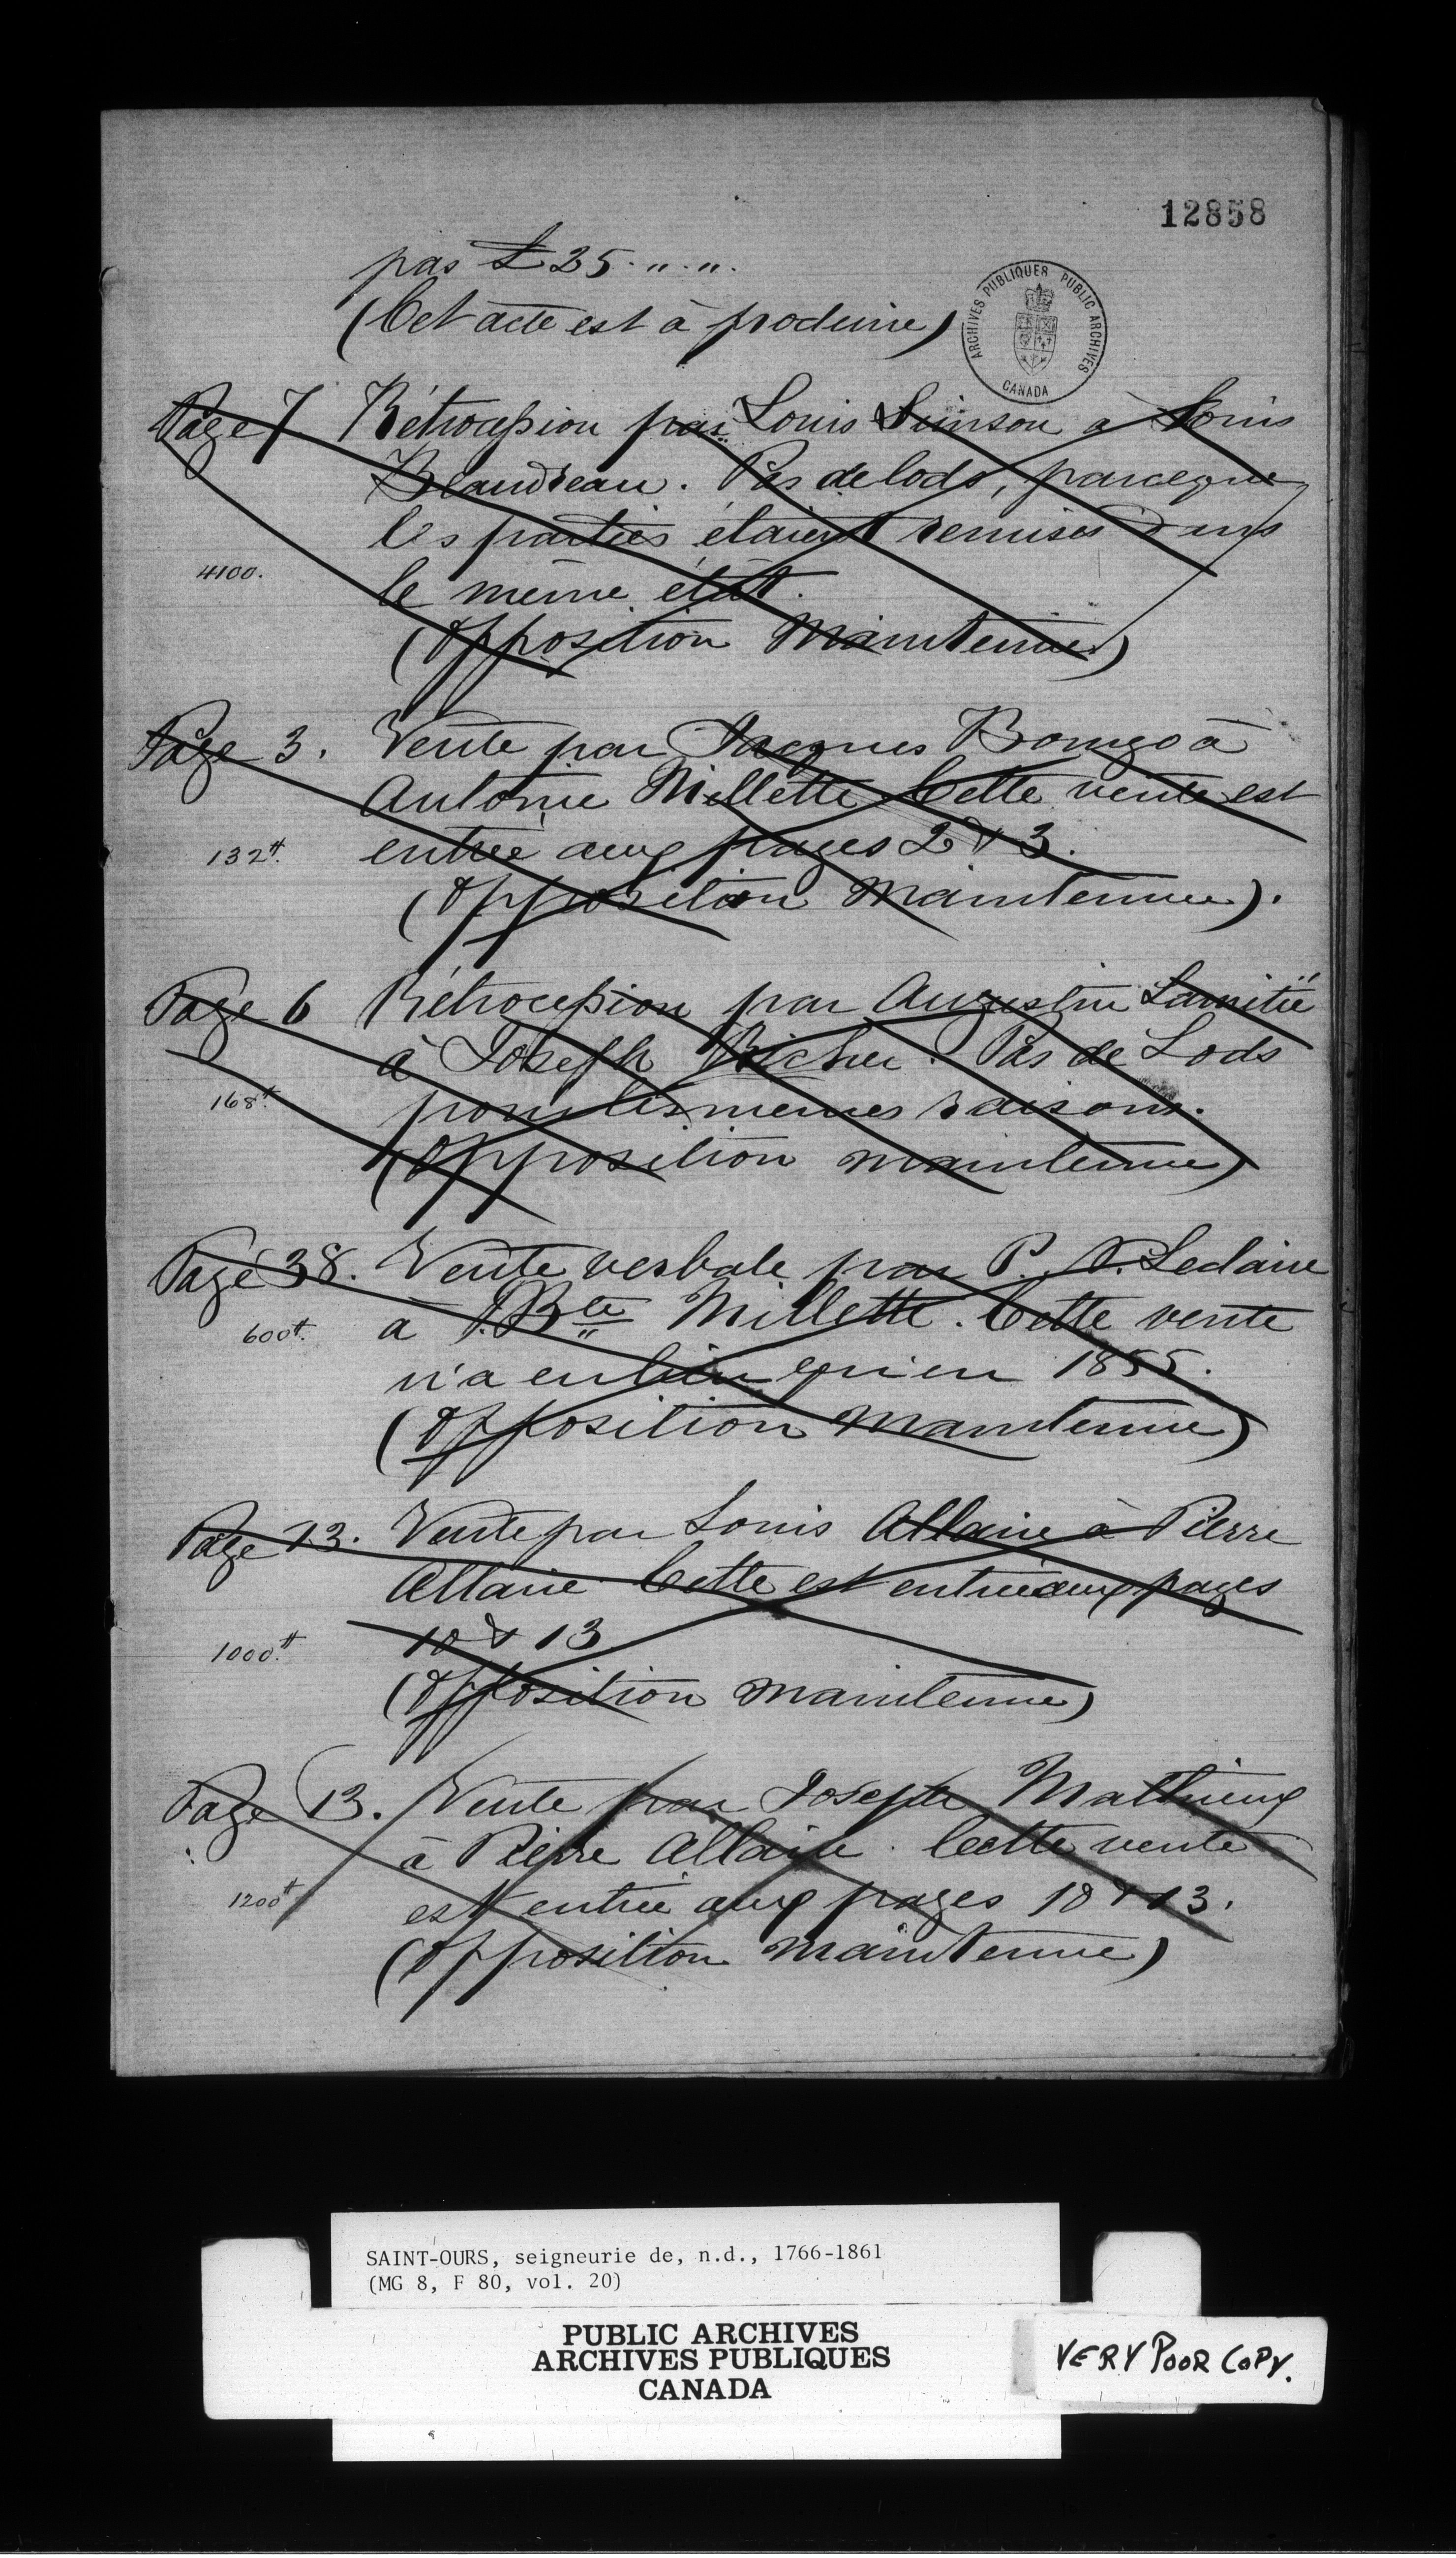 12858
pas £25 . " . " .
(Cet acte est à produire)
ARCHIVES PUBLIQUES PUBLIC ARCHIVES
CANADA
Page 7 Rétrocession par Louis à Louis
Beaudreau. Pas de lods, parceque
les parties étaient remises dans
4100. le même état.
(Opposition Maintenue)
Page 3. Vente par Jacques à
Antoine Millette. Cette vente est
132# entrée aux pages 2 & 3.
(Opposition Maintenue).
Page 6 Rétrocession par Augustin
à Joseph Richer. Pas de Lods
168# pour les mêmes raisons.
(Opposition maintenue)
Page 38. Vente verbale par P. Leclaire
600# a J. Bte Millette. Cette vente
n'a eu lieu qu'en 1855.
(Opposition Maintenue)
Page 13. Vente par Louis Allaire à Pierre
Allaire. Cette est entrée aux pages
1000# 10 & 13
(Opposition maintenue)
Page 13. Vente par Joseph Mathieux
à Pierre Allaire. Cette vente
1200# est entrée aux pages 10 & 13.
(Opposition Maintenue)
SAINT-OURS, seigneurie de, n.d., 1766-1861
(MG 8, F 80, vol. 20)
PUBLIC ARCHIVES
ARCHIVES PUBLIQUES
CANADA
VERY POOR COPY.